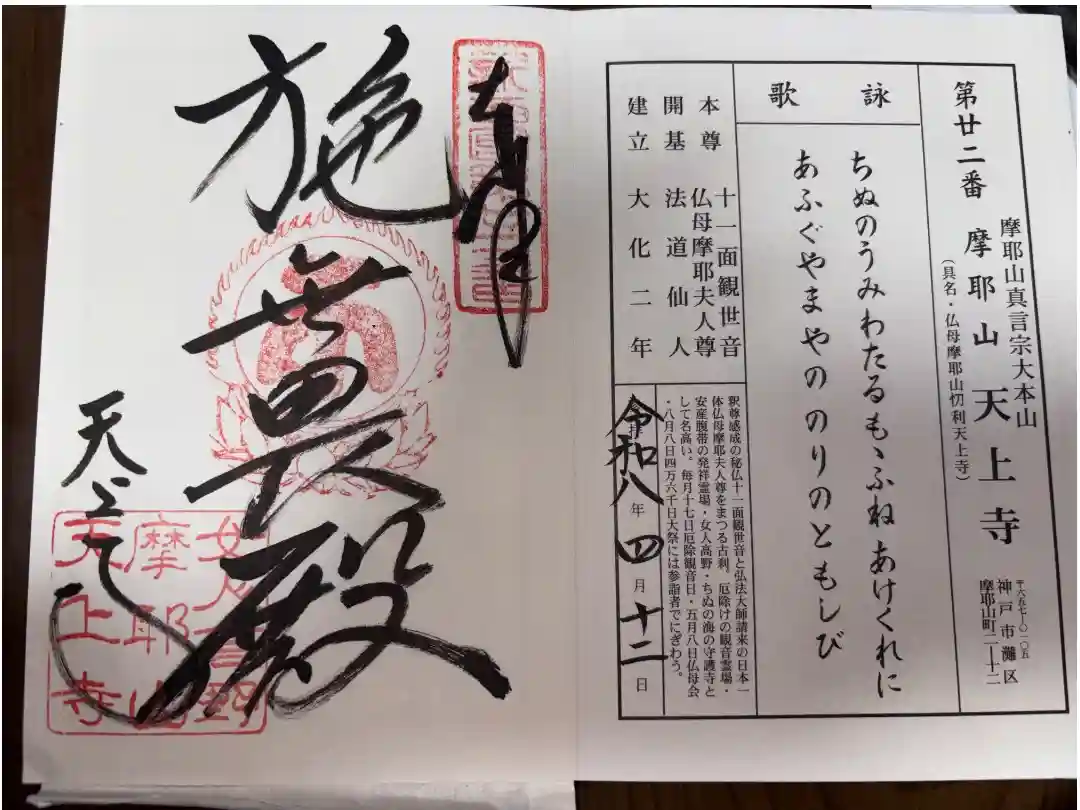 第廿二番
摩耶山真言宗大本山
摩耶山 天上寺
(具名・仏母摩耶山忉利天上寺)
〒六五七ー〇一〇五
神戸市灘区
摩耶山町二ー十二
詠歌
ちぬのうみわたるもゝふねあけくれに
あふぐやまやののりのともしび
本尊 十一面観世音
仏母摩耶夫人尊
開基 法道仙人
建立 大化二年
釈尊感成の秘仏十一面観世音と弘法大師請来の日本一
体仏母摩耶夫人尊をまつる古刹。厄除けの観音霊場・
安産腹帯の発祥霊場・女人高野・ちぬの海の守護寺と
して名高い。毎月十七日厄除観音日・五月八日仏母会
・八月八日四万六千日大祭には参詣者でにぎわう。
令和八年四月十二日
奉拝
施無畏殿
天上寺
女人高野
摩耶山
天上寺